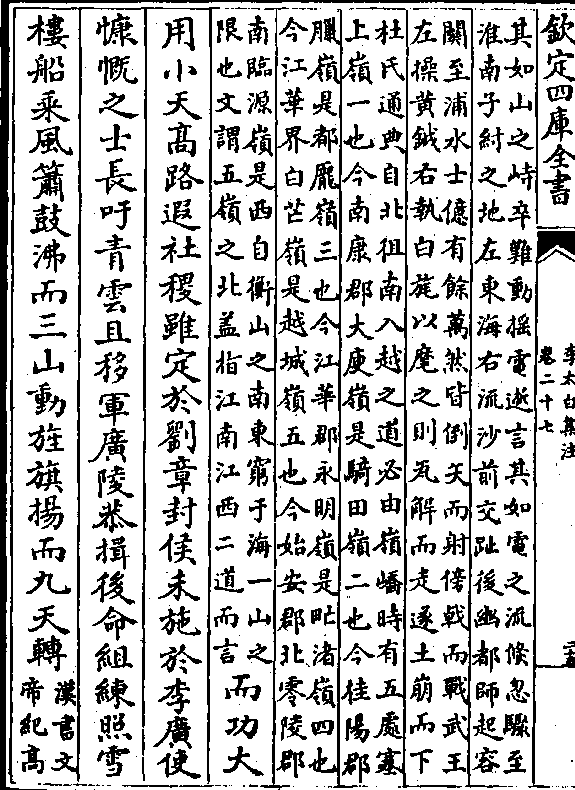 欽定四庫全書
李太白集注
卷二十七
其如山之峙卒難動摇電逝言其如電之流倐忽驟至
淮南子紂之地左東海右流沙前交趾後幽都師起容
關至浦水士億有餘萬然皆倒矢而射傍戟而戰武王
左操黄鉞右執白旄以麾之則瓦解而走遂土崩而下
杜氏通典自北徂南入越之道必由嶺嶠時有五處塞
上嶺一也今南康郡大庾嶺是騎田嶺二也今桂陽郡
臘嶺是都龎嶺三也今江華郡永明嶺是甿渚嶺四也
今江華界白芒嶺是越城嶺五也今始安郡北零陵郡
南臨源嶺是西自衡山之南東窮于海一山之
限也文謂五嶺之北葢指江南江西二道而言
而功大
用小天髙路遐社稷雖定於劉章封侯未施於李廣使
慷慨之士長吁青雲且移軍廣陵恭揖後命組練照雪
樓船乗風簫鼓沸而三山動旌旗揚而九天轉
漢書文
帝紀髙